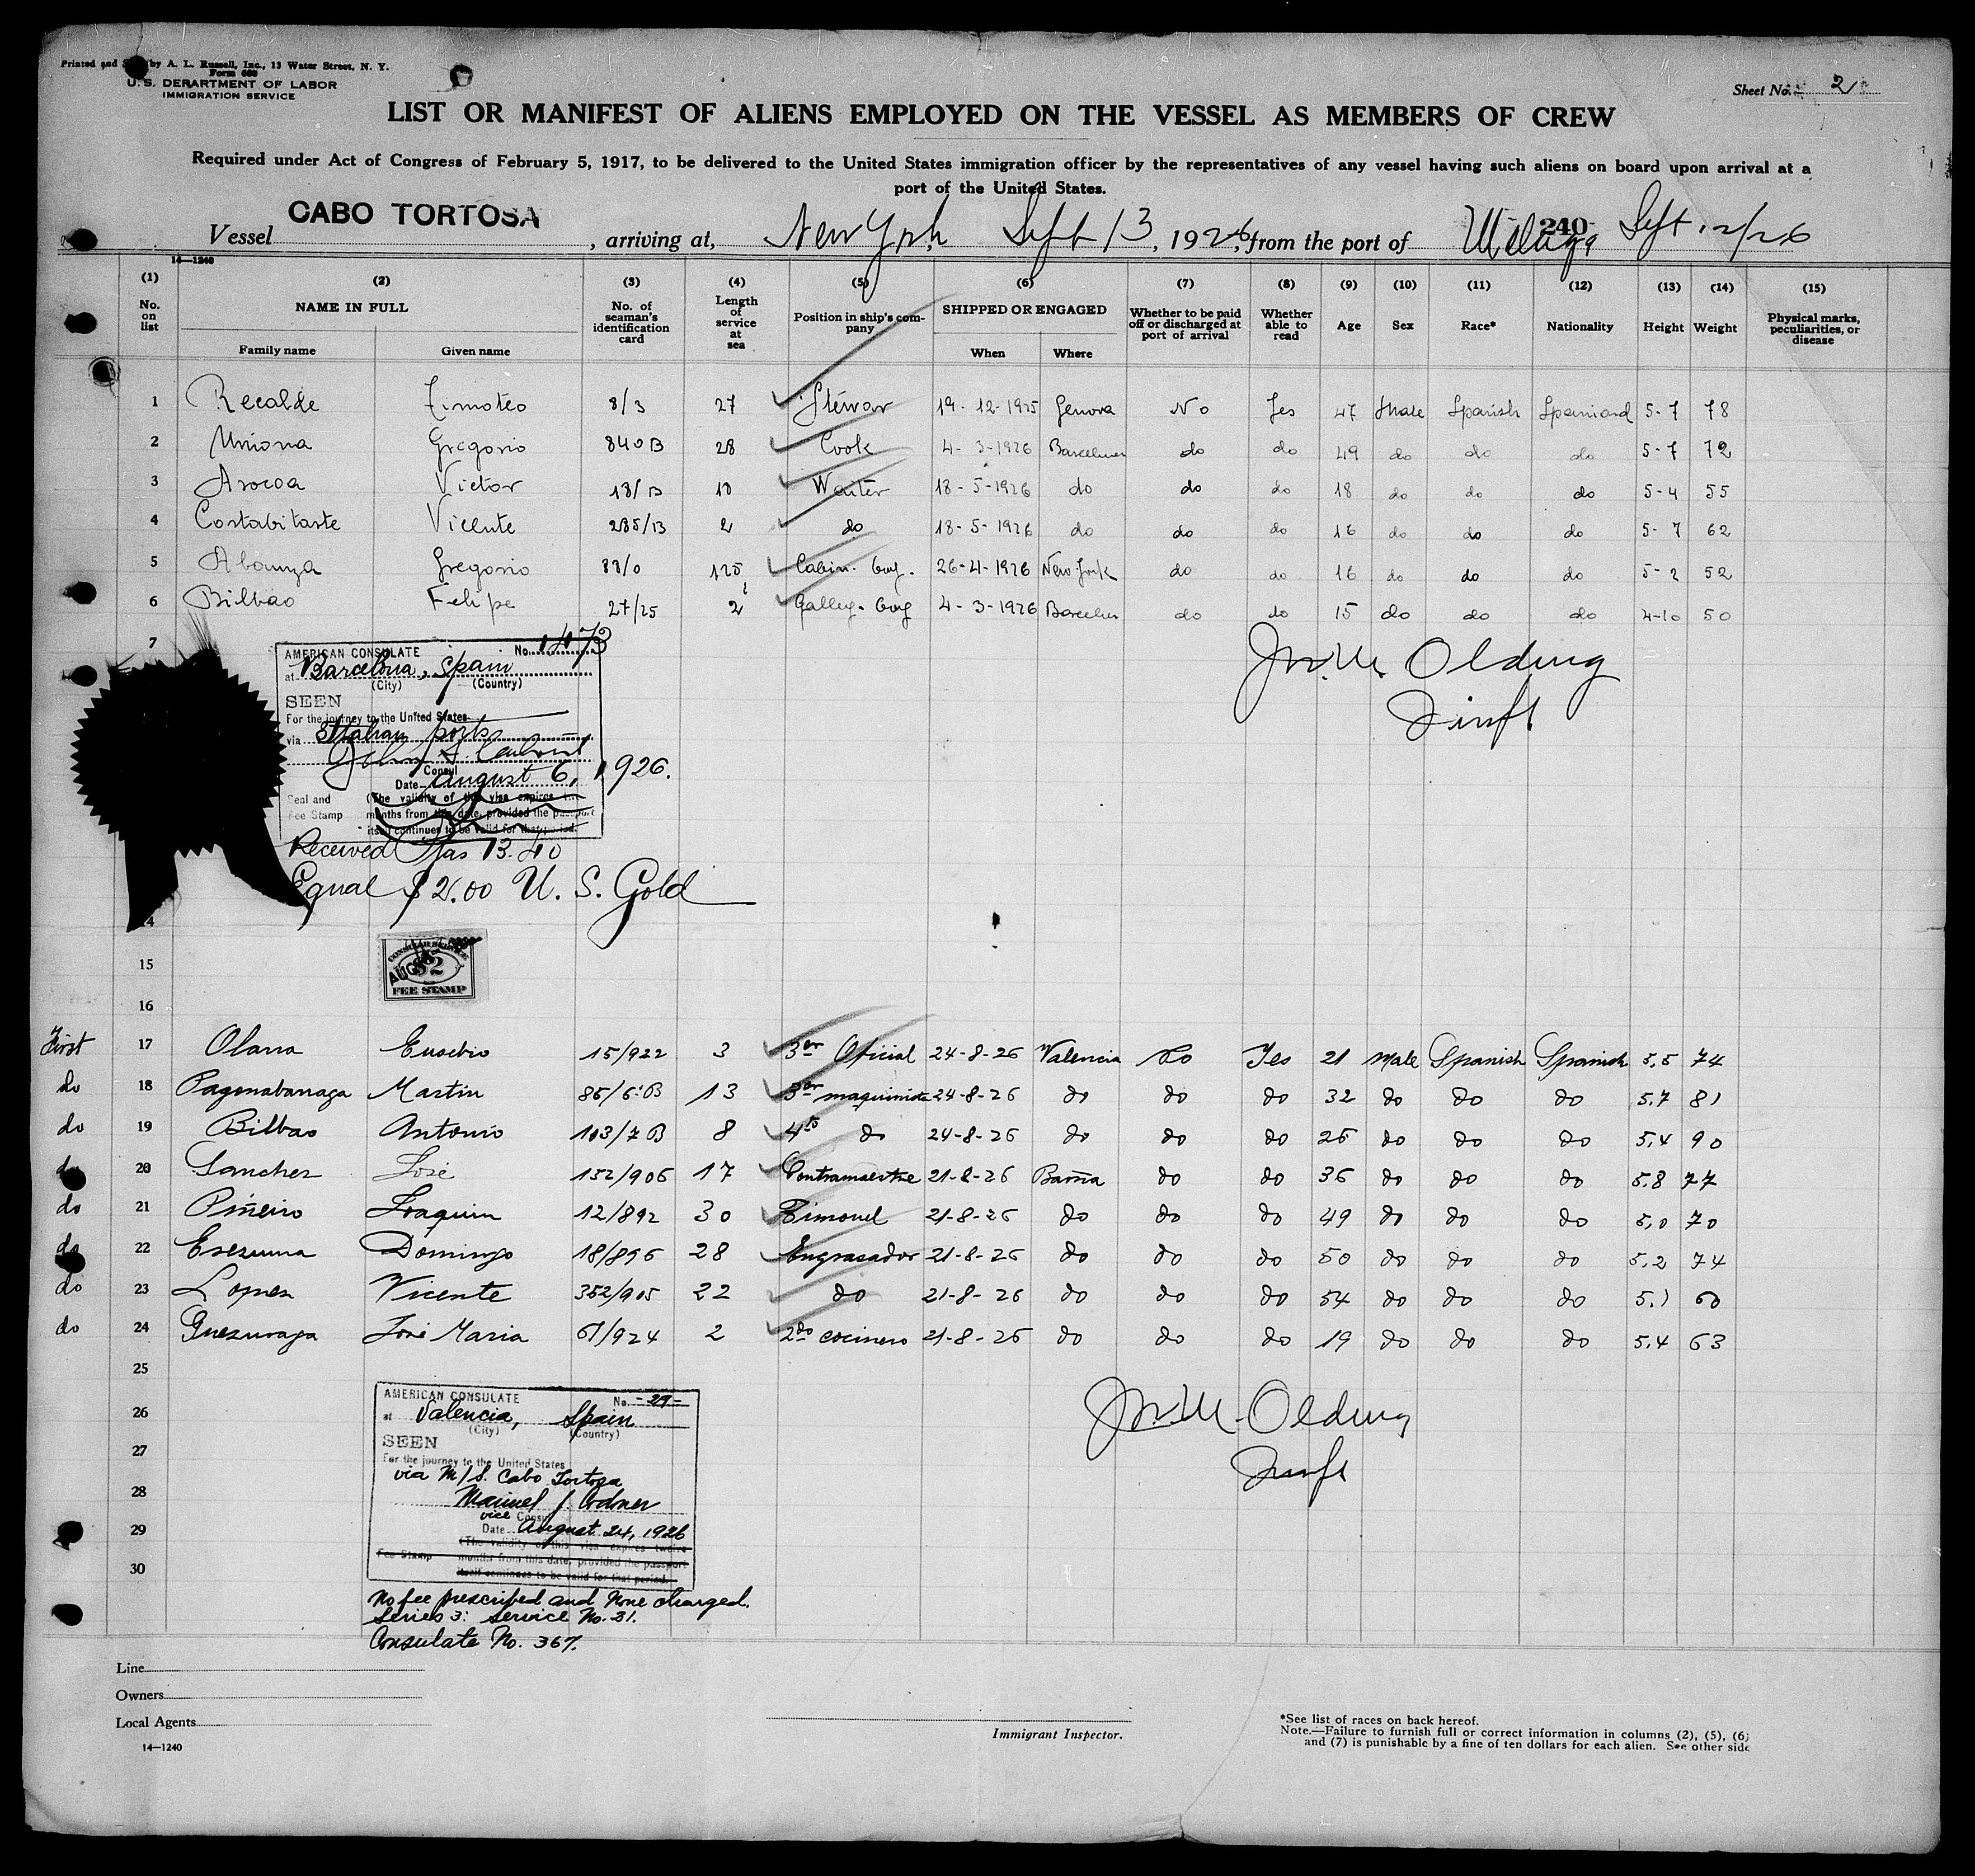 Printed and by A. L. Russell, Inc., 13 Water Street, N. Y.
Form 680
U. S. DEPARTMENT OF LABOR
IMMIGRATION SERVICE
Sheet No. 2
LIST OR MANIFEST OF ALIENS EMPLOYED ON THE VESSEL AS MEMBERS OF CREW
Required under Act of Congress of February 5, 1917, to be delivered to the United States immigration officer by the representatives of any vessel having such aliens on board upon arrival at a
port of the United States.
Vessel CABO TORTOSA, arriving at, New York Sept 13, 1926, from the port of 240 Sept
14—1240
(1) (2) (3) (4) (5) (6) (7) (8) (9) (10) (11) (12) (13) (14) (15)
No. on list NAME IN FULL No. of seaman's identification card Length of service at sea Position in ship's company SHIPPED OR ENGAGED Whether to be paid off or discharged at port of arrival Whether able to read Age Sex Race* Nationality Height Weight Physical marks, peculiarities, or disease
Family name Given name When Where
1 Recalde Timoteo 8/3 27 Stewar 19-12-1925 Genova No Yes 47 Male Spanish Spaniard 5-7 78
2 Gregorio 840B 28 Cook 4-3-1926 do do 49 do do do 5-7 72
3 Arocoa Victor 18/B 10 Waiter 18-5-1926 do do do 18 do do do 5-4 55
4 Costabitarte Vicente 285/B 2 do 18-5-1926 do do do 16 do do do 5-7 62
5 Abaunza Gregorio 33/0 Cabin-boy. 26-4-1926 New York do do 16 do do do 5-2 52
6 Bilbao Felipe 27/25 2 Galley-boy 4-3-1926 do do 15 do do do 4-10 50
7
AMERICAN CONSULATE No. 1473
at Barcelona, Spain
(City) (Country)
SEEN
For the journey to the United States
via Italian ports
Consul
Date August 6, 1926.
Seal and Fee Stamp (The validity of this visa expires
months from this date, provided the passport
itself continues to be valid for that period.
Received Ptas 13.40
Equal $2.00 U. S. Gold
Jn. M. Olding
CONSULAR SERVICE
AUG
$2
FEE STAMP
15
16
First 17 Olarra Eusebio 15/922 3 3er Oficial 24-8-26 Valencia No Yes 21 Male Spanish Spanish 5,5 74
do 18 Pagonabarraga Martin 86/6-B 13 3er maquinista 24-8-26 do do do 32 do do do 5.7 81
do 19 Bilbao Antonio 103/7B 8 4to do 24-8-26 do do do 26 do do do 5,4 90
do 20 Sanchez José 152/906 17 Contramaestre 21-8-26 Barna do do 36 do do do 5.8 77
do 21 Piñeiro Joaquin 12/892 30 Timonel 21-8-26 do do do 49 do do do 5,0 70
do 22 Domingo 18/896 28 Engrasador 21-8-26 do do do 50 do do do 5,2 74
do 23 Lopez Vicente 352/905 22 do 21-8-26 do do do 54 do do do 5.1 60
do 24 Guezuraga José Maria 61/924 2 2do cocinero 21-8-26 do do do 19 do do do 5.4 63
25
26
27
28
29
30
AMERICAN CONSULATE No. -29-
at Valencia, Spain
(City) (Country)
SEEN
For the journey to the United States
via M/S. Cabo Tortosa
Manuel J. Codoner
vice Consul
Date August 24, 1926
(The validity of this visa expires twelve
Fee Stamp months from this date, provided the passport
itself continues to be valid for that period.
No fee prescribed and none charged.
Series 3: service No. 31.
Consulate No. 367.
Jn. M. Olding
Line
Owners
Local Agents
14—1240
Immigrant Inspector.
*See list of races on back hereof.
Note.—Failure to furnish full or correct information in columns (2), (5), (6)
and (7) is punishable by a fine of ten dollars for each alien. See other side